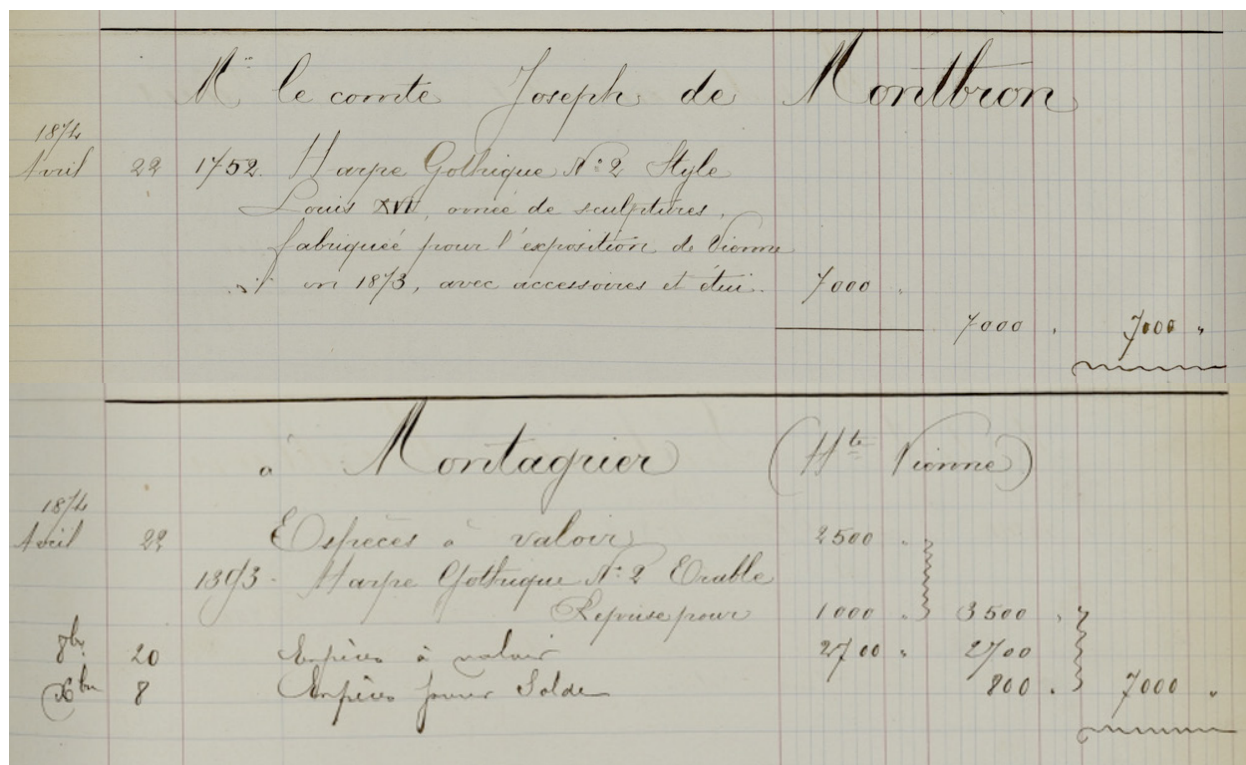 Mr le comte Joseph de Montbron
1874
Avril 22 1752. Harpe Gothique No: 2 Style
Louis XVI, ornée de sculptures,
fabriquée pour l'exposition de Vienne
en 1873, avec accessoires et étui. 7000 "
7000 " 7000 "
à Montagrier (Hte Vienne)
1874
Avril 22 Espèces à valoir 2500 "
1393. Harpe Gothique No: 2 Erable
Reprise pour 1000 " 3500 "
8bre 20 Espèces à valoir 2700 " 2700
Xbre 8 Espèces pour Solde 800 " 7000 "